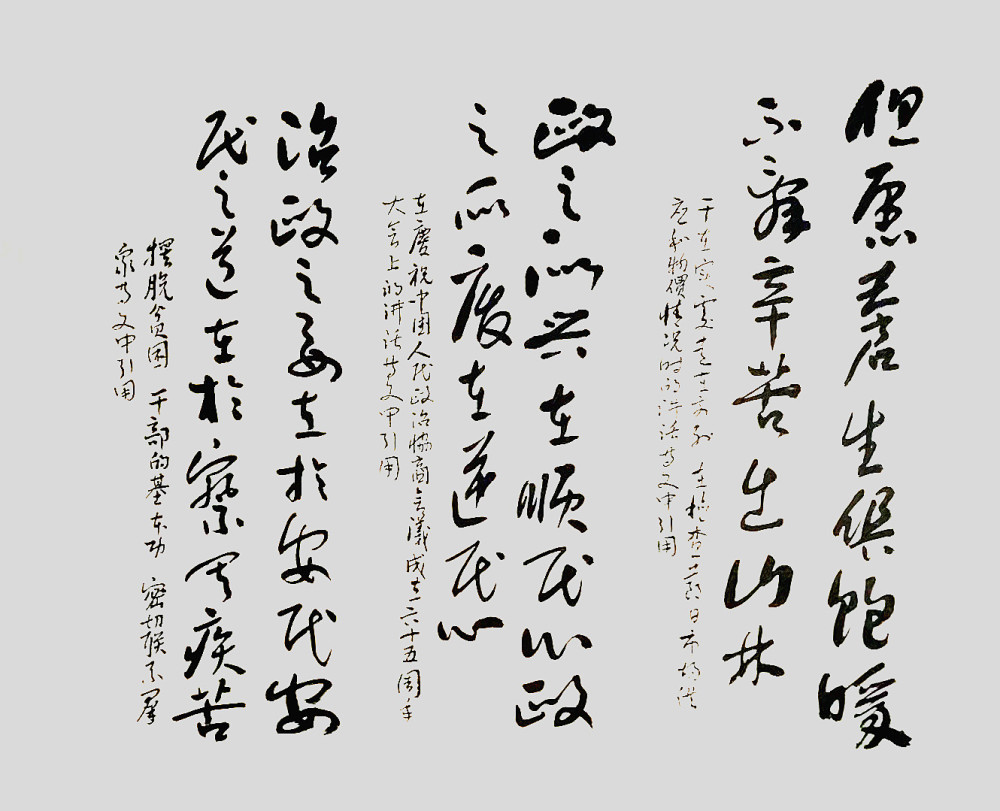 但愿苍生俱饱暖
不辞辛苦出山林
干在实处走在前列 在检查节日市场供
应和物价情况时的讲话等文中引用
政之所兴在顺民心政
之所废在逆民心
在庆祝中国人民政治协商会议成立六十五周年
大会上的讲话等文中引用
治政之要在於安民安
民之道在於察其疾苦
摆脱贫困 干部的基本功 密切联系群
众等文中引用